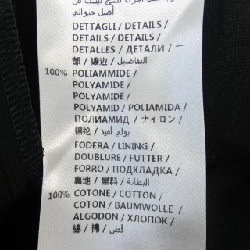 أصل حيواني
DETTAGLI / DETAILS /
DETAILS / DETAILS /
DETALLES / ДЕТАЛИ / ー
部 / 緣边 / التفاصيل /
100% POLIAMMIDE /
POLYAMIDE /
POLYAMIDE /
POLYAMID / POLIAMIDA /
ПОЛИАМИД / ナイロン /
/ 锦纶 / بولي أميد
FODERA / LINING /
DOUBLURE / FUTTER /
FORRO / ПОДКЛАДКА /
裏地 / 里料 / البطانة /
100% COTONE / COTTON /
COTON / BAUMWOLLE /
ALGODON / ХЛОПОК /
綿 / 棉 / قطن